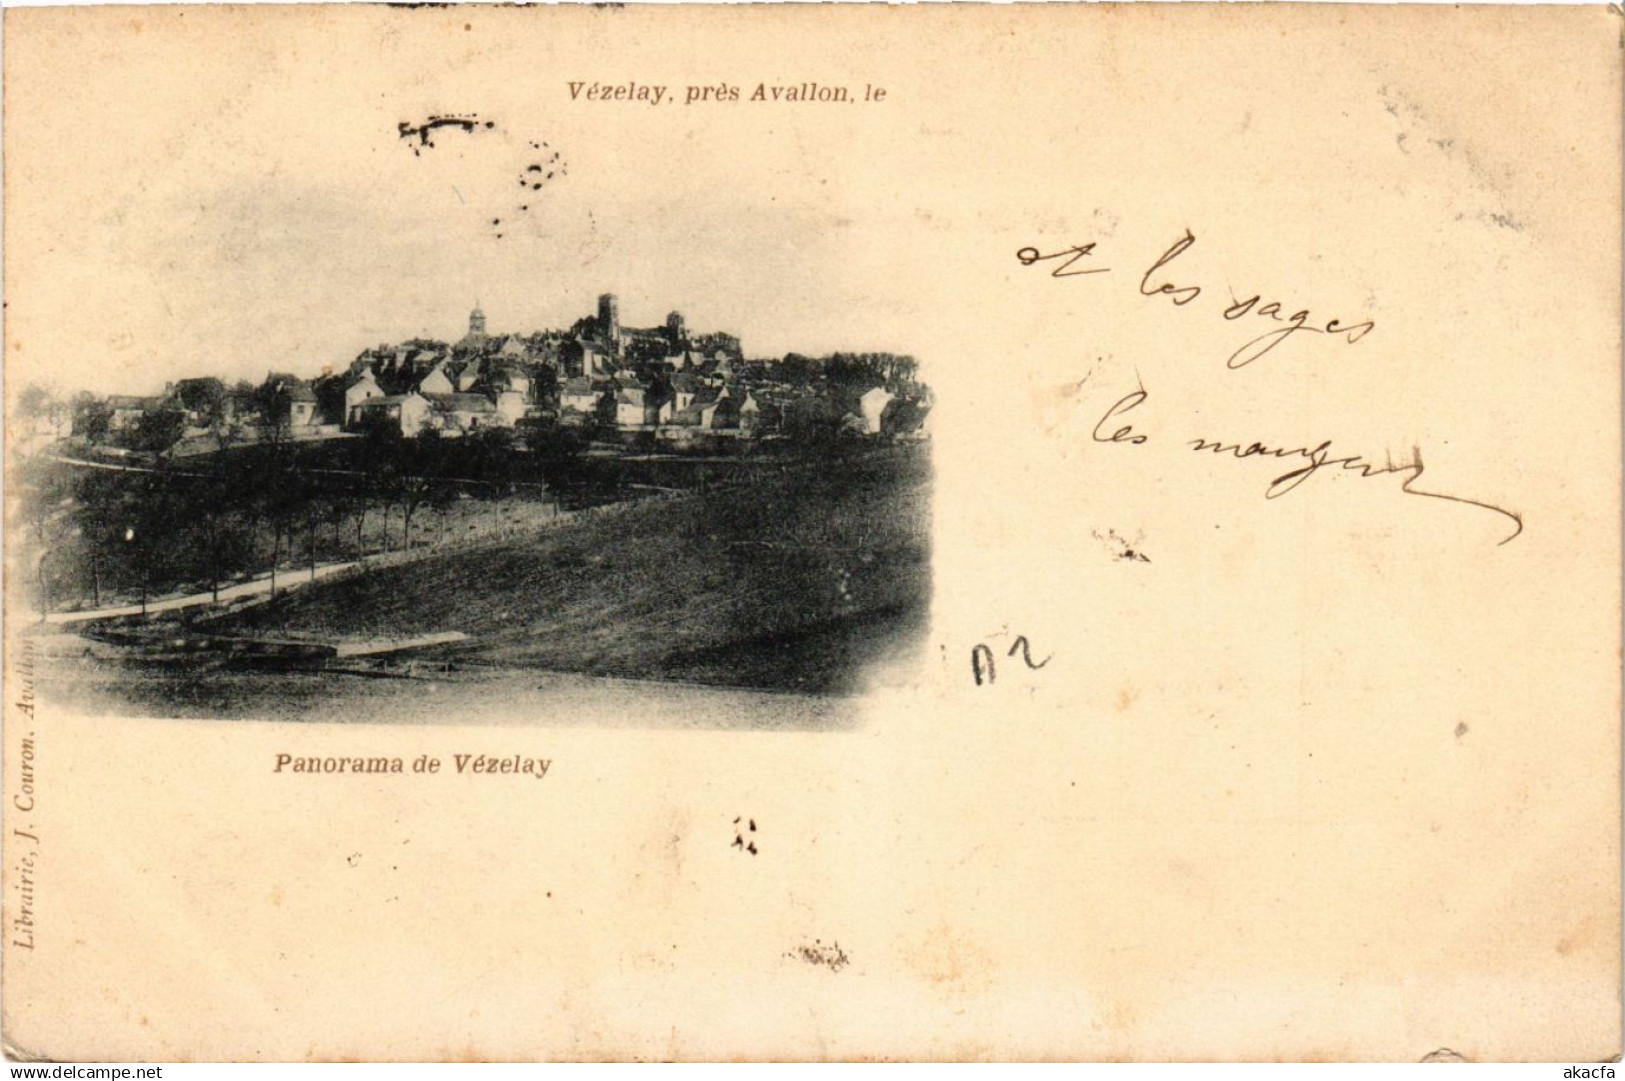 Vézelay, près Avallon, le
et les sages
les mangent
A2
Panorama de Vézelay
Librairie, J. Couron, Avallon
www.delcampe.net
akacfa